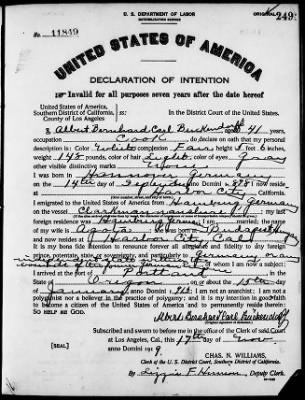 U. S. DEPARTMENT OF LABOR
NATURALIZATION SERVICE
ORIGINAL 249
No. 11849
UNITED STATES OF AMERICA
DECLARATION OF INTENTION
Invalid for all purposes seven years after the date hereof
United States of America,
Southern District of California,
County of Los Angeles
In the District Court of the United States.
I, Albert Bernhard Carl aged 41 years,
occupation Cook, do declare on oath that my personal
description is: Color White, complexion Fair, height feet 6 inches,
weight 148 pounds, color of hair Light, color of eyes Gray
other visible distinctive marks
I was born in Hannover Germany
on the 14th day of anno Domini 1878; I now reside
at Harbor City, California.
I emigrated to the United States of America from Hamburg Germany
on the vessel ; my last
foreign residence was
; I am married; the name of my
wife is Agata; she was born in Budapest
and now resides at Harbor City Calif
It is my bona fide intention to renounce forever all allegiance and fidelity to any foreign
prince, potentate, state, or sovereignty, and particularly to Germany or any
of whom I am now a subject;
I arrived at the port of Portland, in the
State of Oregon, on or about the 15th day
of January, anno Domini 191 ; I am not an anarchist; I am not a
polygamist nor a believer in the practice of polygamy; and it is my intention in good faith
to become a citizen of the United States of America and to permanently reside therein:
SO HELP ME GOD.
Subscribed and sworn to before me in the office of the Clerk of said Court
at Los Angeles, Cal., this 17th day of Nov
anno Domini 1919.
[SEAL]
CHAS. N. WILLIAMS,
Clerk of the U. S. District Court, Southern District of California.
By Lizzie F. , Deputy Clerk.